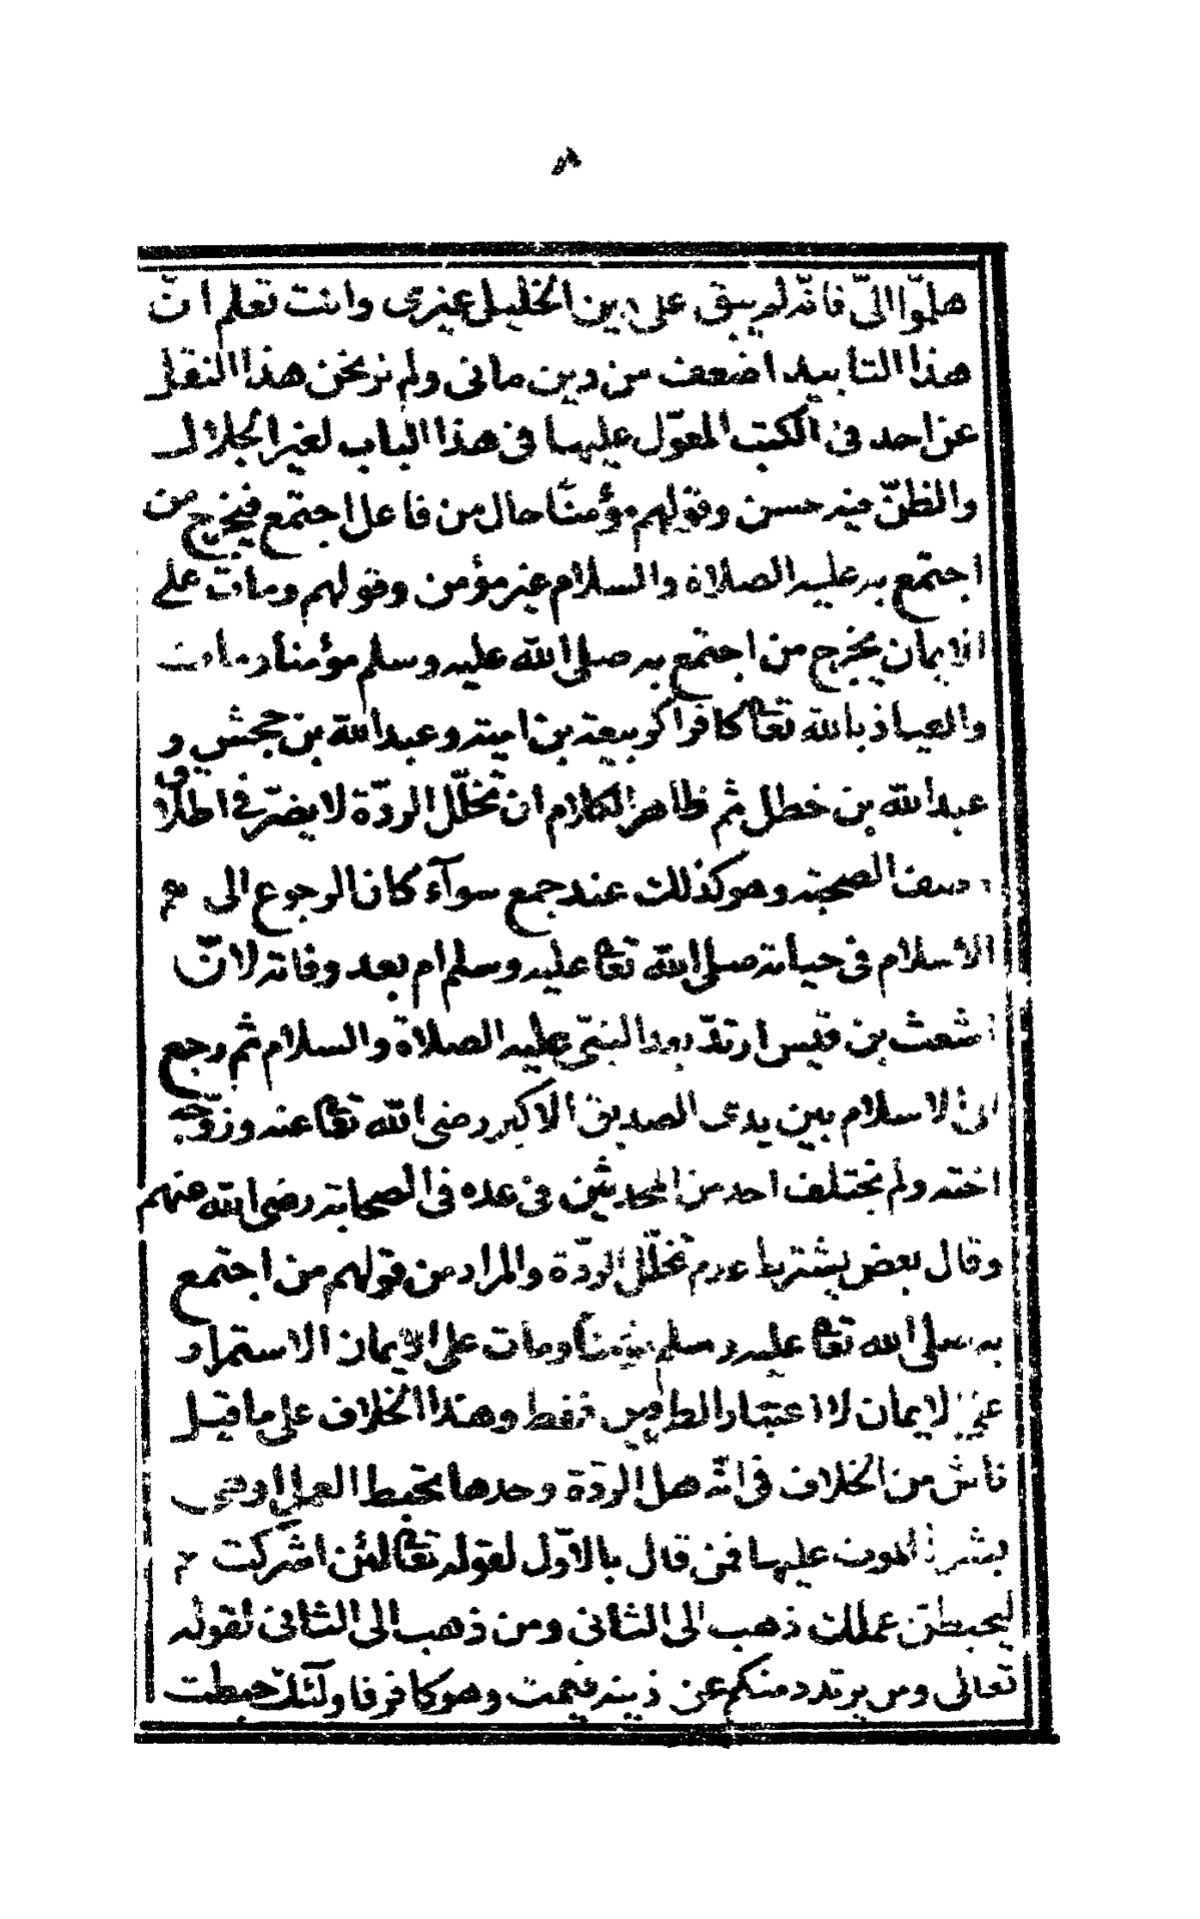 ٥٨
هلمّوا اليّ فانّه لم يبق على دين الخليل غيرى وانت تعلم انّ
هذا التاييد اضعف من دين مانى ولم نر نحن هذا النقل
عن احد فى الكتب المعوّل عليها فى هذا الباب لغير الجلال
والظنّ فيه حسن وقولهم مؤمنًا حال من فاعل اجتمع فيخرج من
اجتمع به عليه الصلاة والسلام غير مؤمن وقولهم ومات على
الايمان يخرج من اجتمع به صلى الله عليه وسلم مؤمنا ومات
والعياذ بالله تعالى كافرا كربيعة بن امية وعبد الله بن جحش و
عبد الله بن خطل ثم ظاهر الكلام ان تخلّل الردّة لا يضرّ فى اطلاق
وصف الصحبة وهو كذلك عند جمع سوآء كان الرجوع الى
الاسلام فى حياته صلى الله تعالى عليه وسلم ام بعد وفاته لانّ
اشعث بن قيس ارتدّ بعد النبىّ عليه الصلاة والسلام ثم رجع
الى الاسلام بين يدى الصديق الاكبر رضى الله تعالى عنه وزوّجه
اخته ولم يختلف احد من المحدثين فى عده فى الصحابة رضى الله عنهم
وقال بعض يشترط عدم تخلّل الردّة والمراد من قولهم من اجتمع
به صلى الله تعالى عليه وسلم مؤمنًا ومات على الايمان الاستمرار
على الايمان لا اعتبار الطرفين فقط وهذا الخلاف على ما قيل
ناش من الخلاف فى انّه هل الردّة وحدها تحبط العمل او هى
بشرط الموت عليها فمن قال بالاوّل لقوله تعالى لئن اشركت
ليحبطن عملك ذهب الى الثانى ومن ذهب الى الثانى لقوله
تعالى ومن يرتدد منكم عن دينه فيمت وهو كافر فاولئك حبطت